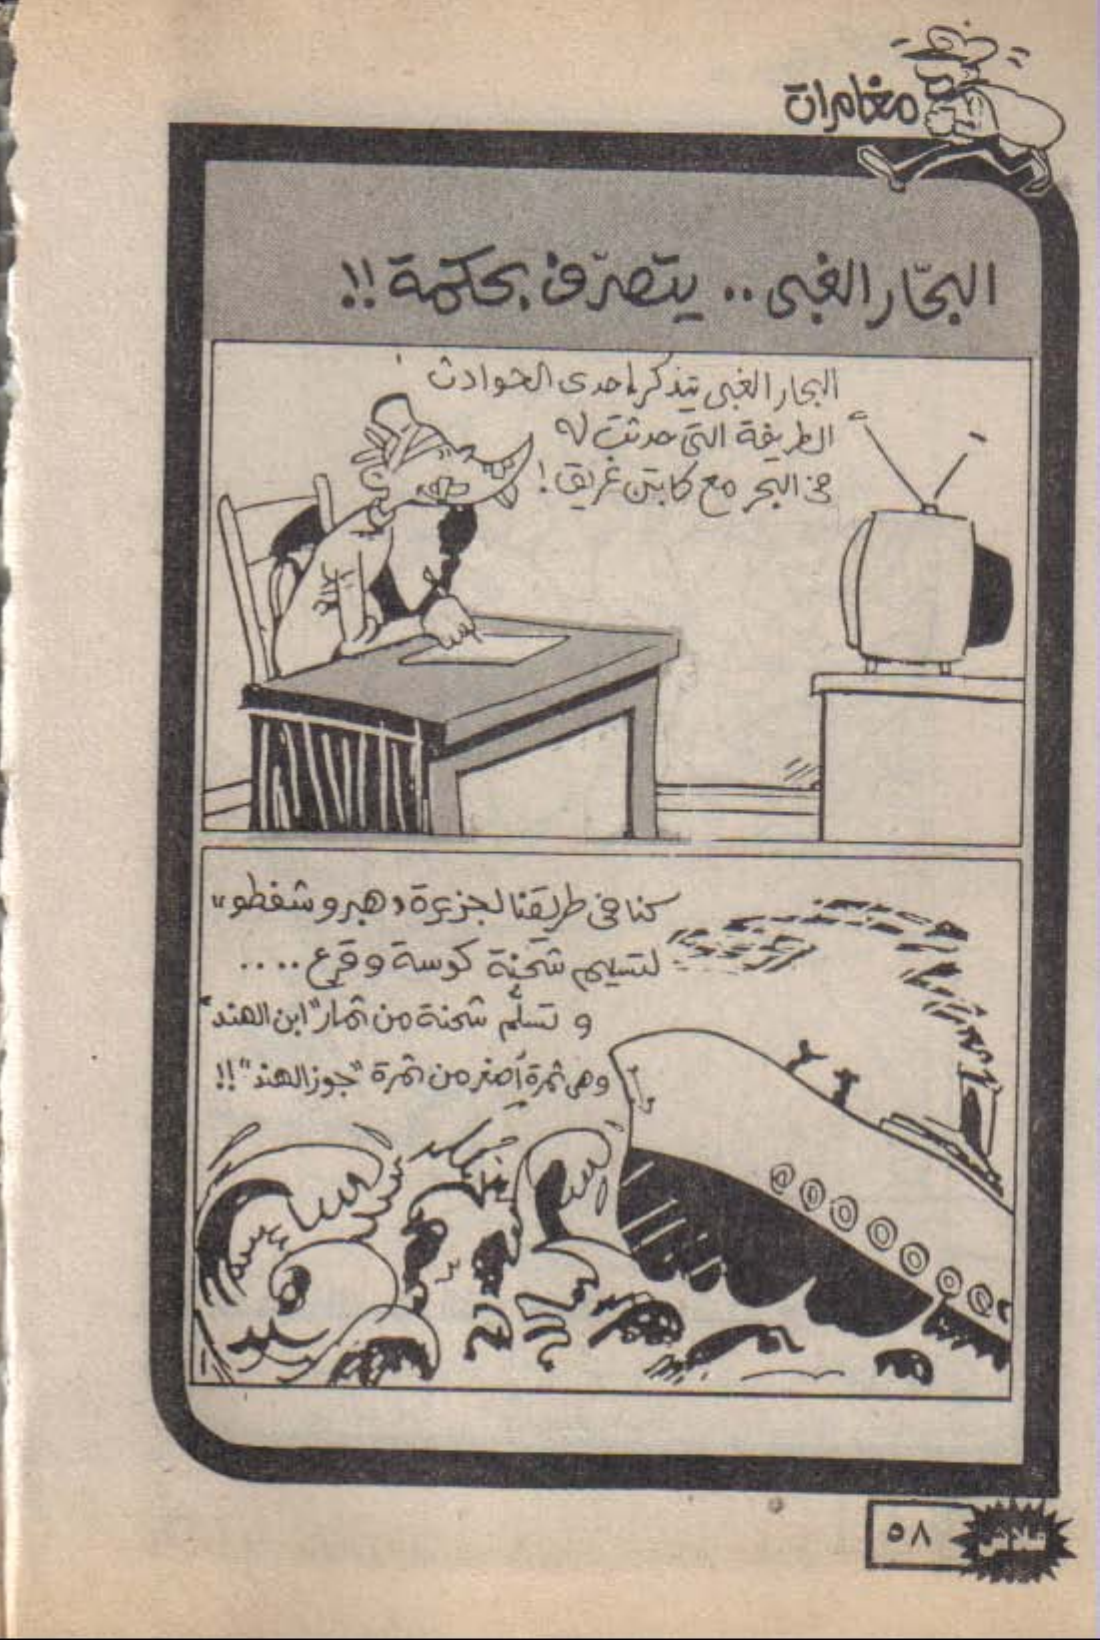 مغامرات
البحّار الغبى .. يتصرّف بحكمة !!
البحار الغبى يتذكر إحدى الحوادث
الطريفة التى حدثت له
فى البحر مع كابتن غريق !
كنا فى طريقنا لجزيرة « هبرو شفطو »
لتسليم شحنة كوسة وقرع ....
و تسلّم شحنة من ثمار "ابن الهند"
وهى ثمرة أصغر من ثمرة "جوز الهند" !!
فلاش
٥٨